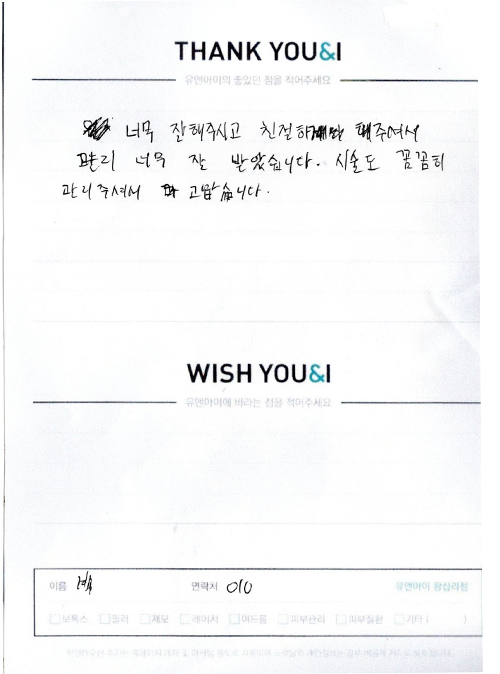 THANK YOU&I
유앤아이의 좋았던 점을 적어주세요
너무 잘해주시고 친절하게 해주셔서
관리 너무 잘 받았습니다. 시술도 꼼꼼히
관리 주셔서 고맙습니다.
WISH YOU&I
유앤아이에 바라는 점을 적어주세요
이름 연락처 010 유앤아이 왕십리점
보톡스 필러 제모 레이저 여드름 피부관리 피부질환 기타 ( )